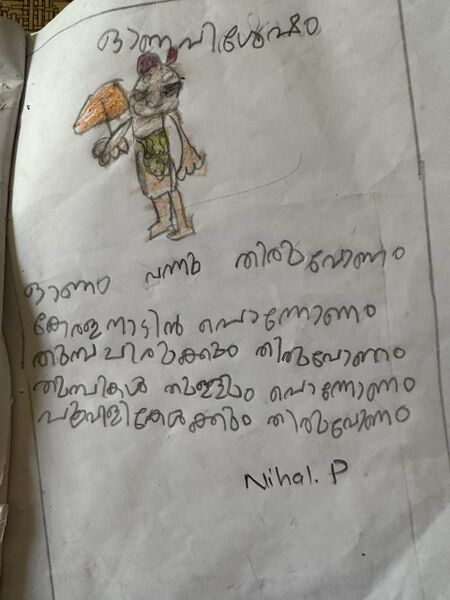 ഓണവിശേഷം
ഓണം വന്നു തിരുവോണം
കേരളനാടിൻ പൊന്നോണം
തുമ്പ ചിരുക്കും തിരുവോണം
തുമ്പികൾ തുള്ളും പൊന്നോണം
പൂവിളികേൾക്കും തിരുവോണം
Nihal. P